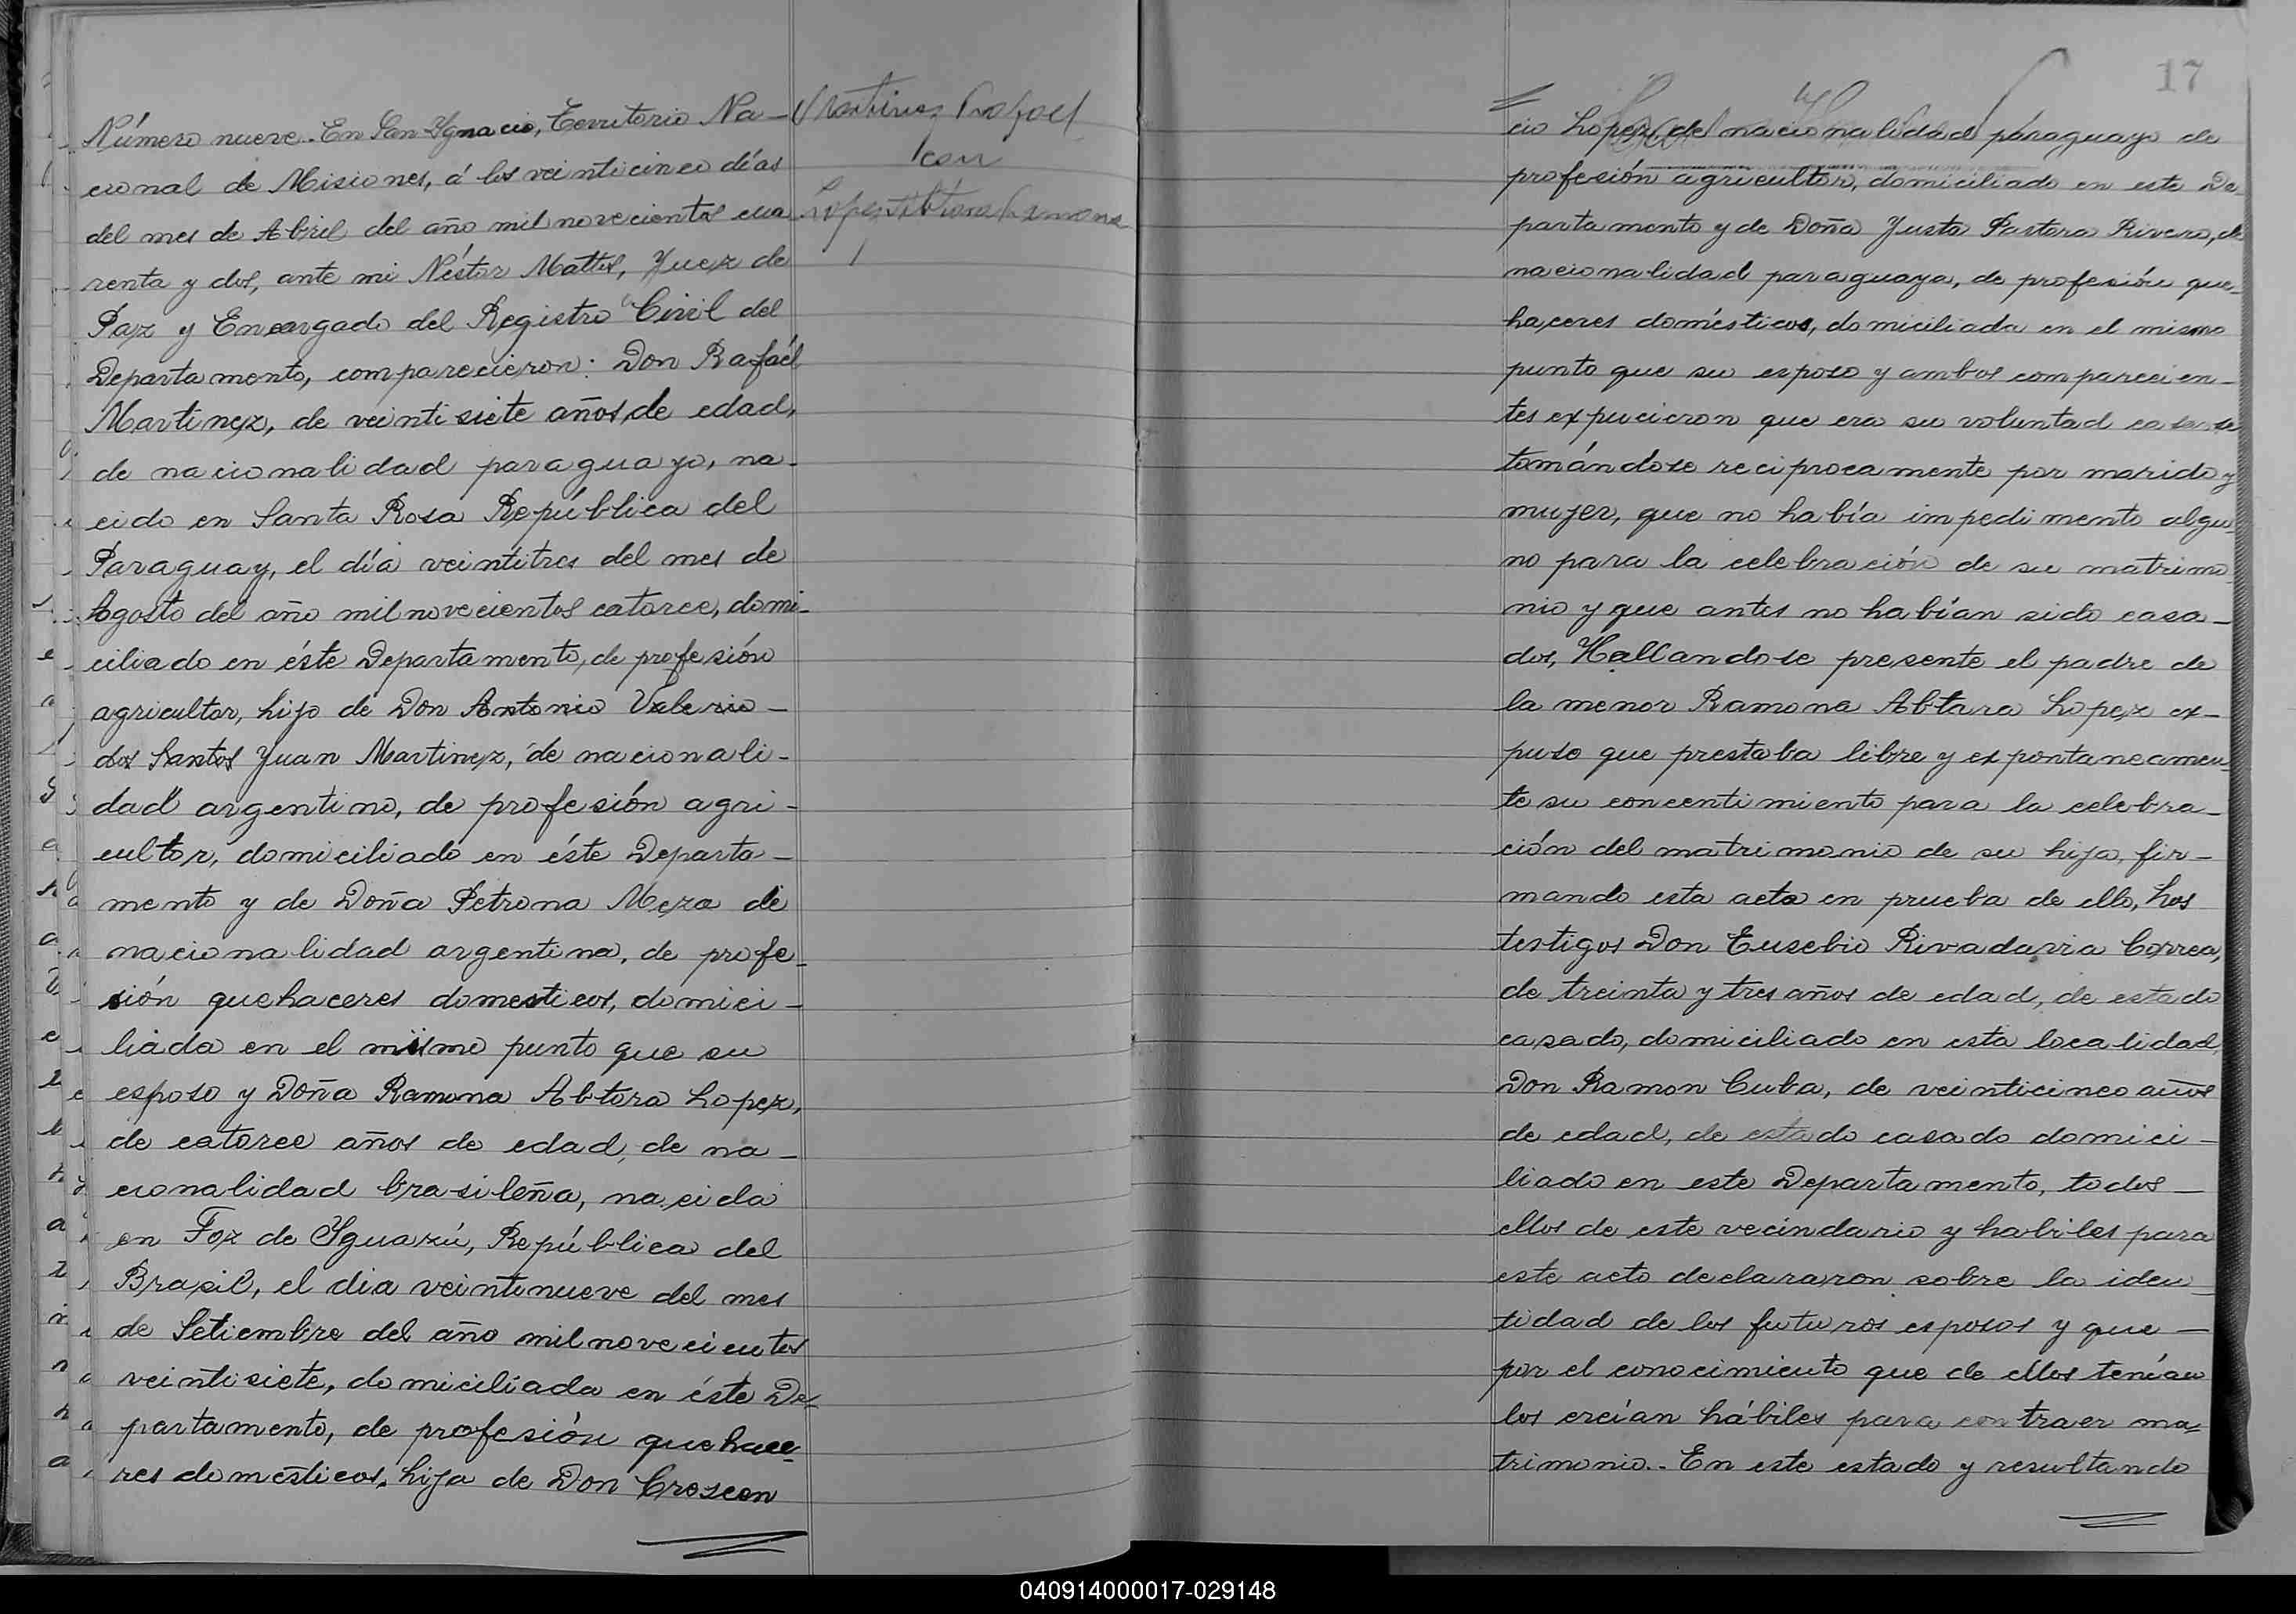 Número nueve.- En San Ygnacio, Territorio Na-
cional de Misiones, á los veinticinco días
del mes de Abril del año mil novecientos cua-
renta y dos, ante mi Néstor Mattos, Juez de
Paz y Encargado del Registro Civil del
Departamento, comparecieron: Don Rafaél
Martinez, de veintisiete años, de edad,
de nacionalidad paraguayo, na-
cido en Santa Rosa República del
Paraguay, el día veintitres del mes de
Agosto del año mil novecientos catorce, domi-
ciliado en éste Departamento, de profesión
agricultor, hijo de Don Antonio Valerio -
dos Santos Juan Martinez, de nacionali-
dad argentino, de profesión agri-
cultor, domiciliado en éste Departa-
mento y de Doña Petrona Meza de
nacionalidad argentina, de profe-
sión quehaceres domesticos, domici-
liada en el mismo punto que su
esposo y Doña Ramona Abtora Lopez,
de catorce años de edad, de na-
cionalidad brasileña, nacida
en Foz de Yguazú, República del
Brasil, el dia veintinueve del mes
de Setiembre del año mil novecientos
veintisiete, domiciliada en éste De-
partamento, de profesión quehace-
res domésticos, hija de Don Crescen
Martinez Rafael
con
Lopez Abtora Ramona
17
cio Lopez, de nacionalidad paraguayo de
profesión agricultor, domiciliado en este De-
partamento y de Doña Justa Pastora Rivero, de
nacionalidad paraguaya, de profesión que-
haceres domésticos, domiciliada en el mismo
punto que su esposo y ambos comparecien-
tes expucieron que era su voluntad casarse
tomándose reciprocamente por marido y
mujer, que no había impedimento algu-
no para la celebración de su matrimo-
nio y que antes no habían sido casa-
dos, Hallandose presente el padre de
la menor Ramona Abtara Lopez ex-
puso que prestaba libre y expontaneamen-
te su concentimiento para la celebra-
ción del matrimonio de su hija, fir-
mando esta acta en prueba de ello, Los
testigos Don Eusebio Rivadavia Correa,
de treinta y tres años de edad, de estado
casado, domiciliado en esta localidad,
Don Ramon Cuba, de veinticinco años
de edad, de estado casado domici-
liado en este Departamento, todos -
ellos de este vecindario y habiles para
este acto declararon sobre la iden-
tidad de los futuros esposos y que -
por el conocimiento que de ellos tenían
los creían hábiles para contraer ma-
trimonio.- En este estado y resultando
040914000017-029148